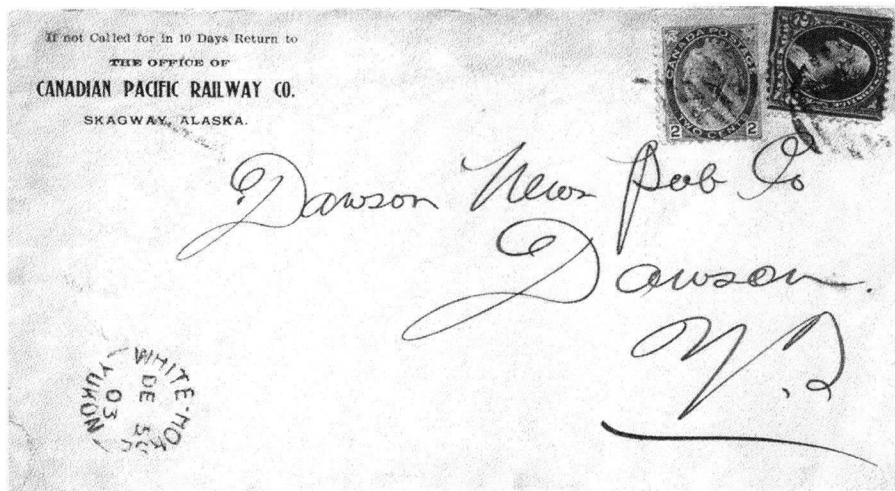 If not Called for in 10 Days Return to
THE OFFICE OF
CANADIAN PACIFIC RAILWAY CO.
SKAGWAY, ALASKA.
CANADA POSTAGE
2 TWO CENTS 2
Dawson News Pub Co
Dawson.
Y.T
WHITE-HO
DE
03
YUKON